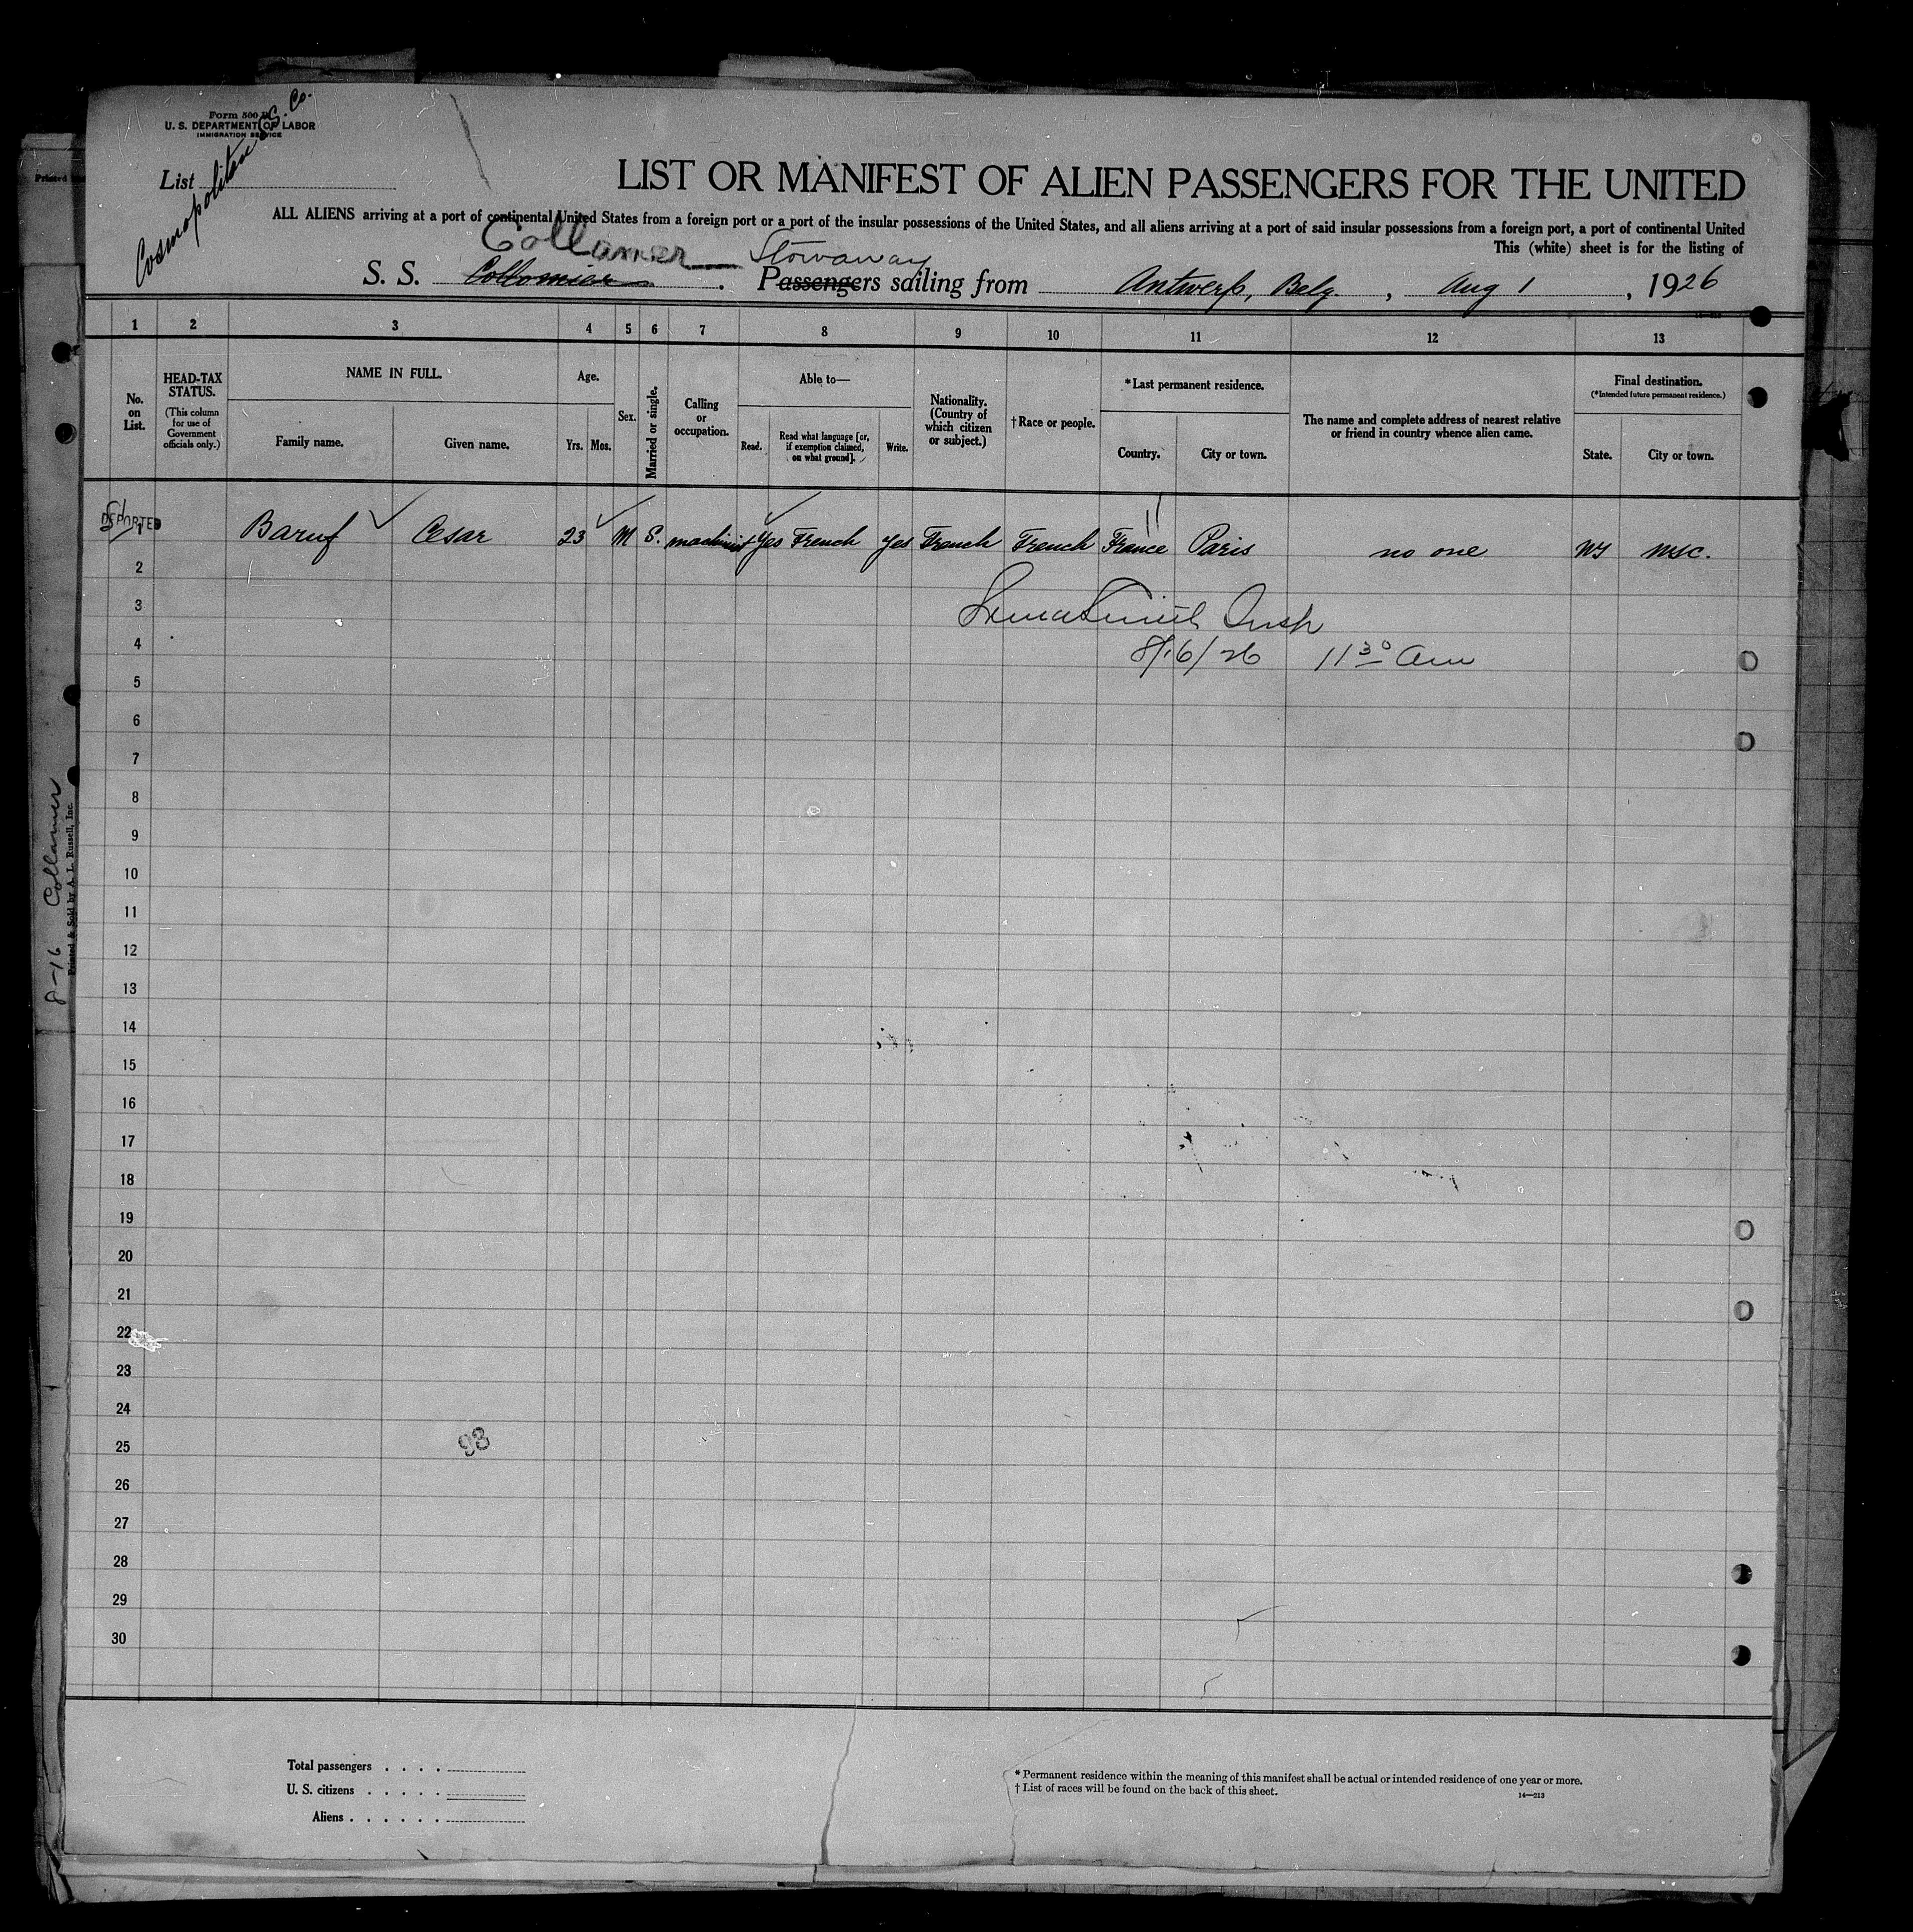 Form 500 B
U. S. DEPARTMENT OF LABOR
IMMIGRATION SERVICE
Cosmopolitan SS. Co.
List
LIST OR MANIFEST OF ALIEN PASSENGERS FOR THE UNITED
ALL ALIENS arriving at a port of continental United States from a foreign port or a port of the insular possessions of the United States, and all aliens arriving at a port of said insular possessions from a foreign port, a port of continental United
This (white) sheet is for the listing of
Collamer Stowaway
S. S. Passengers sailing from Antwerp, Belg. , Aug 1 , 1926
1 2 3 4 5 6 7 8 9 10 11 12 13
No. on List.
HEAD-TAX STATUS.
(This column for use of Government officials only.)
NAME IN FULL.
Family name.
Given name.
Age.
Yrs.
Mos.
Sex.
Married or single.
Calling or occupation.
Able to—
Read.
Read what language [or, if exemption claimed, on what ground].
Write.
Nationality. (Country of which citizen or subject.)
†Race or people.
*Last permanent residence.
Country.
City or town.
The name and complete address of nearest relative or friend in country whence alien came.
Final destination.
(*Intended future permanent residence.)
State.
City or town.
DEPORTED
1 Baruf Cesar 23 M S. machinist Yes French Yes French French France Paris no one NY NYC.
2
3
4 8/16/26 11 30 am
5
6
7
8
9
10
11
12
13
14
15
16
17
18
19
20
21
22
23
24
25
26
27
28
29
30
93
8-16 Collamer
Printed & Sold by A. L. Russell, Inc.
Total passengers
U. S. citizens
Aliens
* Permanent residence within the meaning of this manifest shall be actual or intended residence of one year or more.
† List of races will be found on the back of this sheet.
14—213